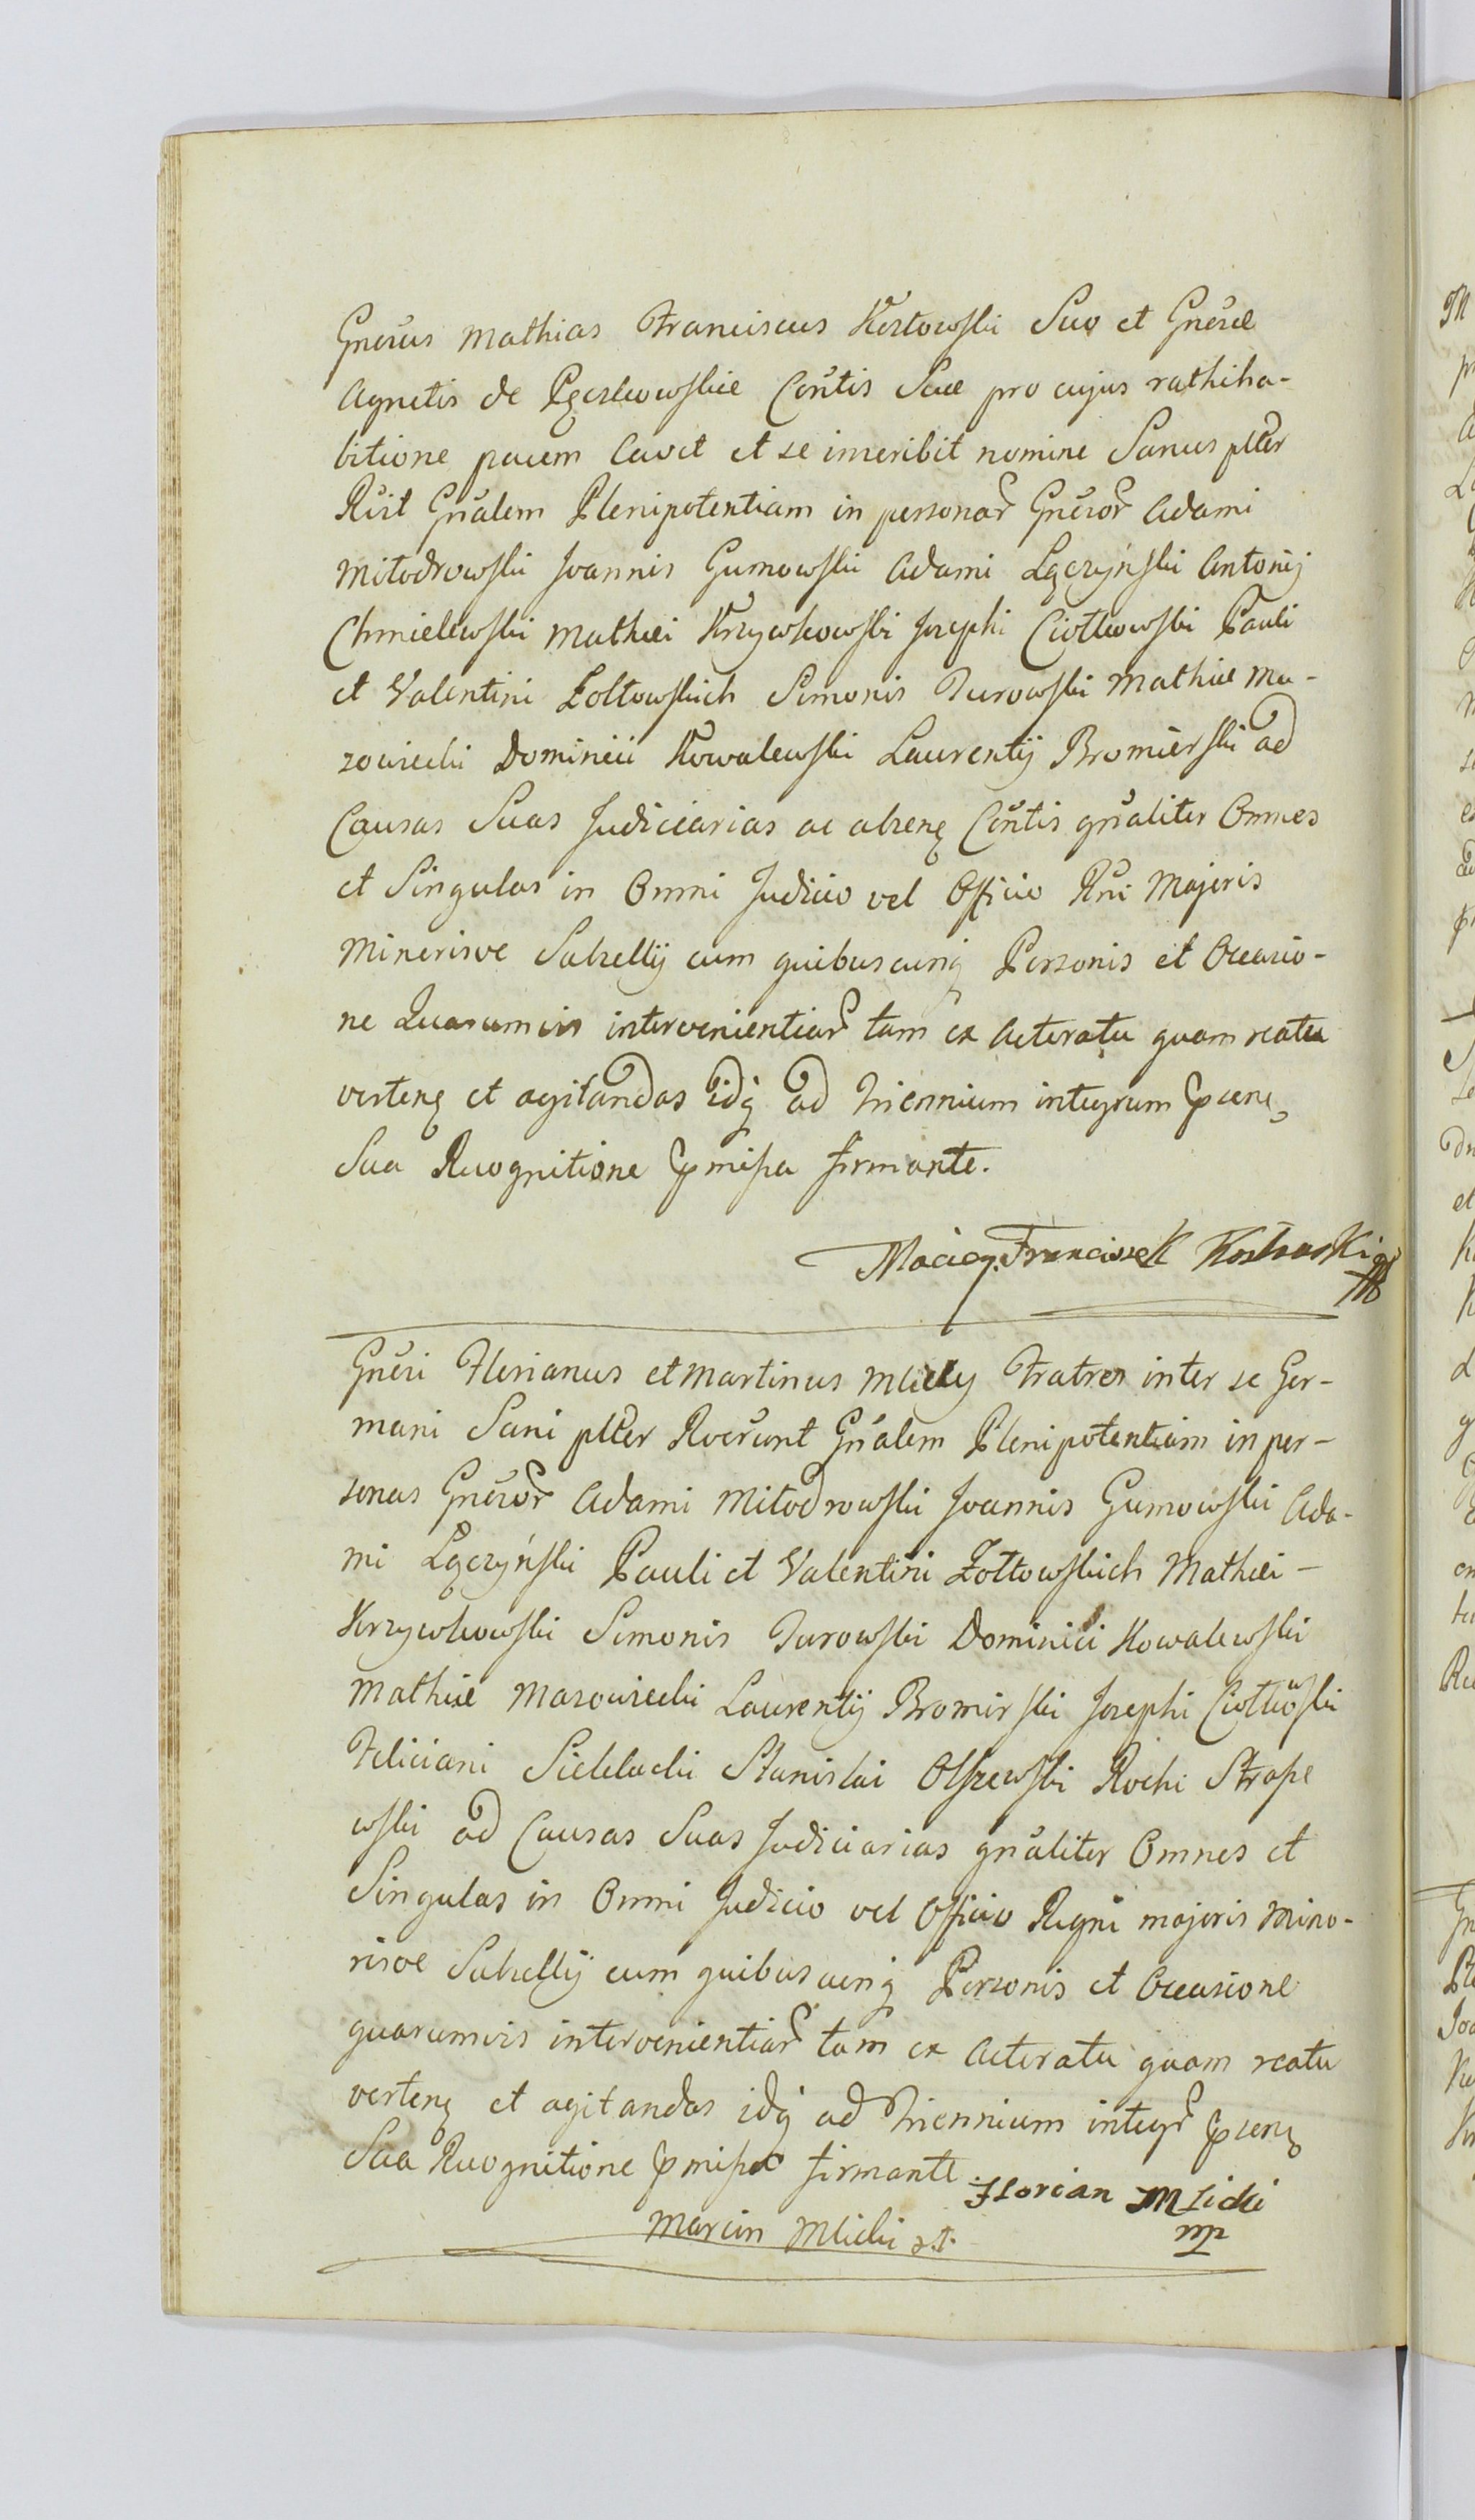 Gnersus Mathias Franciscus Kostowski Suo et Gnersæ
Agnetis de Pęczkowskie Contis Suæ pro cujus rathiha-
bitione pacem Cavet et se inscribit nomine Sanus ptter
Rvit Gnalem Plenipotentiam in personar Gneror Adami
Miłodrowski Joannis Gumowski Adami Łączyński Antonij
Chmielewski Mathæi Krzywkowski Josephi Ciołkowski Pauli
et Valentini Żołtowskich Simonis Turowski Mathiæ Ma-
zowiecki Dominici Kowalewski Laurentij Bromierski ad
Causas Suas Judiciarias ac absenę Contis gnaliter Omnes
et Singulas in Omni Judicio vel Officio Rni Majoris
Minorisve Subsellij cum quibuscunq Personis et Occasio-
ne Quarumvis intervenientiar tam ex Actoratu quam reatu
vertenę et agitandas idq ad Triennium integrum psenę
Sua Recognitione pmissa firmante.
Maciey Franciszek Kostowski
mp
Gneri Florianus et Martinus Mliccy Fratres inter se Ger-
mani Sani ptter Rverunt Gnalem Plenipotentiam in per-
sonas Gneror Adami Miłodrowski Joannis Gumowski Ada-
mi Łączyński Pauli et Valentini Żołtowskich Mathæi -
Krzywkowski Simonis Turowski Dominici Kowalewski
Mathiæ Mazowiecki Laurentij Bromirski Josephi Ciołkowski
Feliciani Sieklucki Stanislai Olszewski Rochi Strape
wski ad Causas Suas Judiciarias gnaliter Omnes et
Singulas in Omni Judicio vel Officio Regni majoris Mino-
risve Subsellij cum quibuscunq Personis et Occasione
quarumvis intervenientiar tam ex Actoratu quam reatu
vertenę et agitandas idq ad Triennium integr psenę
Sua Recognitione pmissa firmante.
Florian Mlicki
mp
Marcin Mlicki